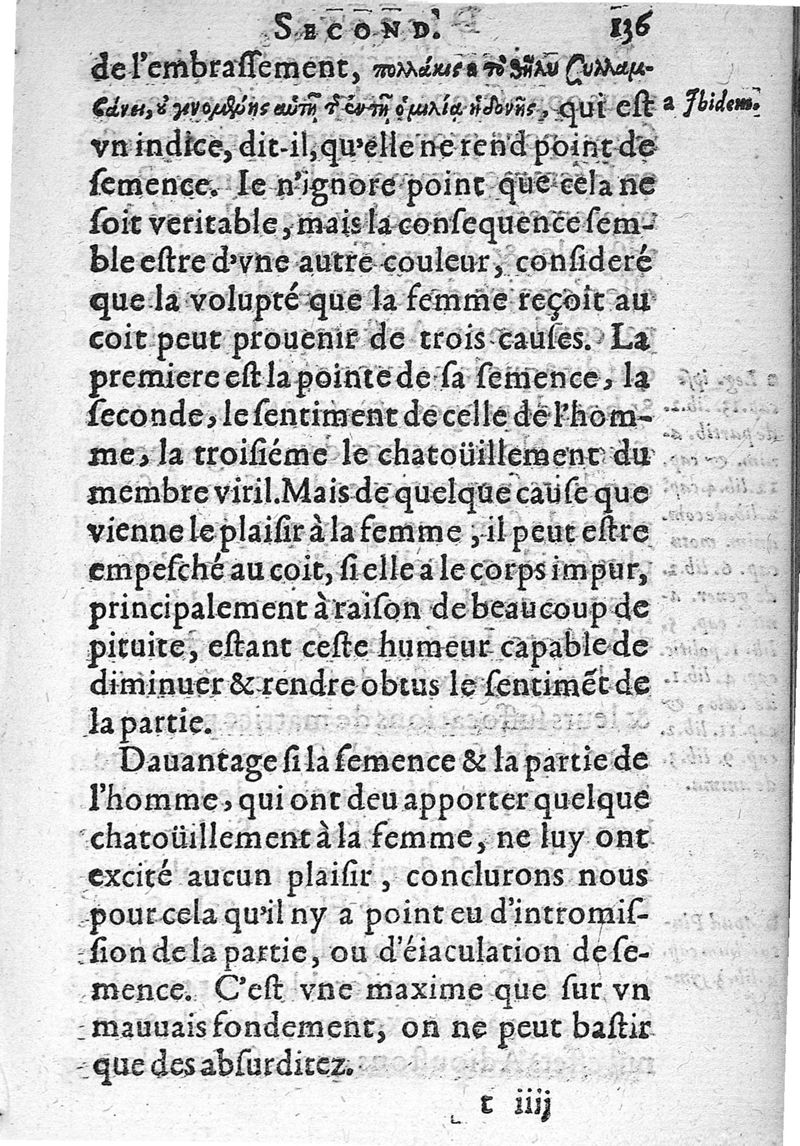 SECOND. 136
de l'embraſſement, πολλάκις a τὸ θῆλυ συλλαμ-
βάνει, οὐ γινομένης αὐτῇ τ̃ ἐν τῇ ὁμιλίᾳ ἡδονῆς, qui eſt
a Ibidem.
vn indice, dit-il, qu'elle ne rend point de
ſemence. Ie n'ignore point que cela ne
ſoit veritable, mais la conſequence ſem-
ble eſtre d'vne autre couleur, conſideré
que la volupté que la femme reçoit au
coit peut prouenir de trois cauſes. La
premiere eſt la pointe de ſa ſemence, la
ſeconde, le ſentiment de celle de l'hom-
me, la troiſiéme le chatoüillement du
membre viril. Mais de quelque cauſe que
vienne le plaiſir à la femme, il peut eſtre
empeſché au coit, ſi elle a le corps impur,
principalement à raiſon de beaucoup de
pituite, eſtant ceſte humeur capable de
diminuer & rendre obtus le ſentimẽt de
la partie.
Dauantage ſi la ſemence & la partie de
l'homme, qui ont deu apporter quelque
chatoüillement à la femme, ne luy ont
excité aucun plaiſir, conclurons nous
pour cela qu'il ny a point eu d'intromiſ-
ſion de la partie, ou d'éiaculation de ſe-
mence. C'eſt vne maxime que ſur vn
mauuais fondement, on ne peut baſtir
que des abſurditez.
t iiij